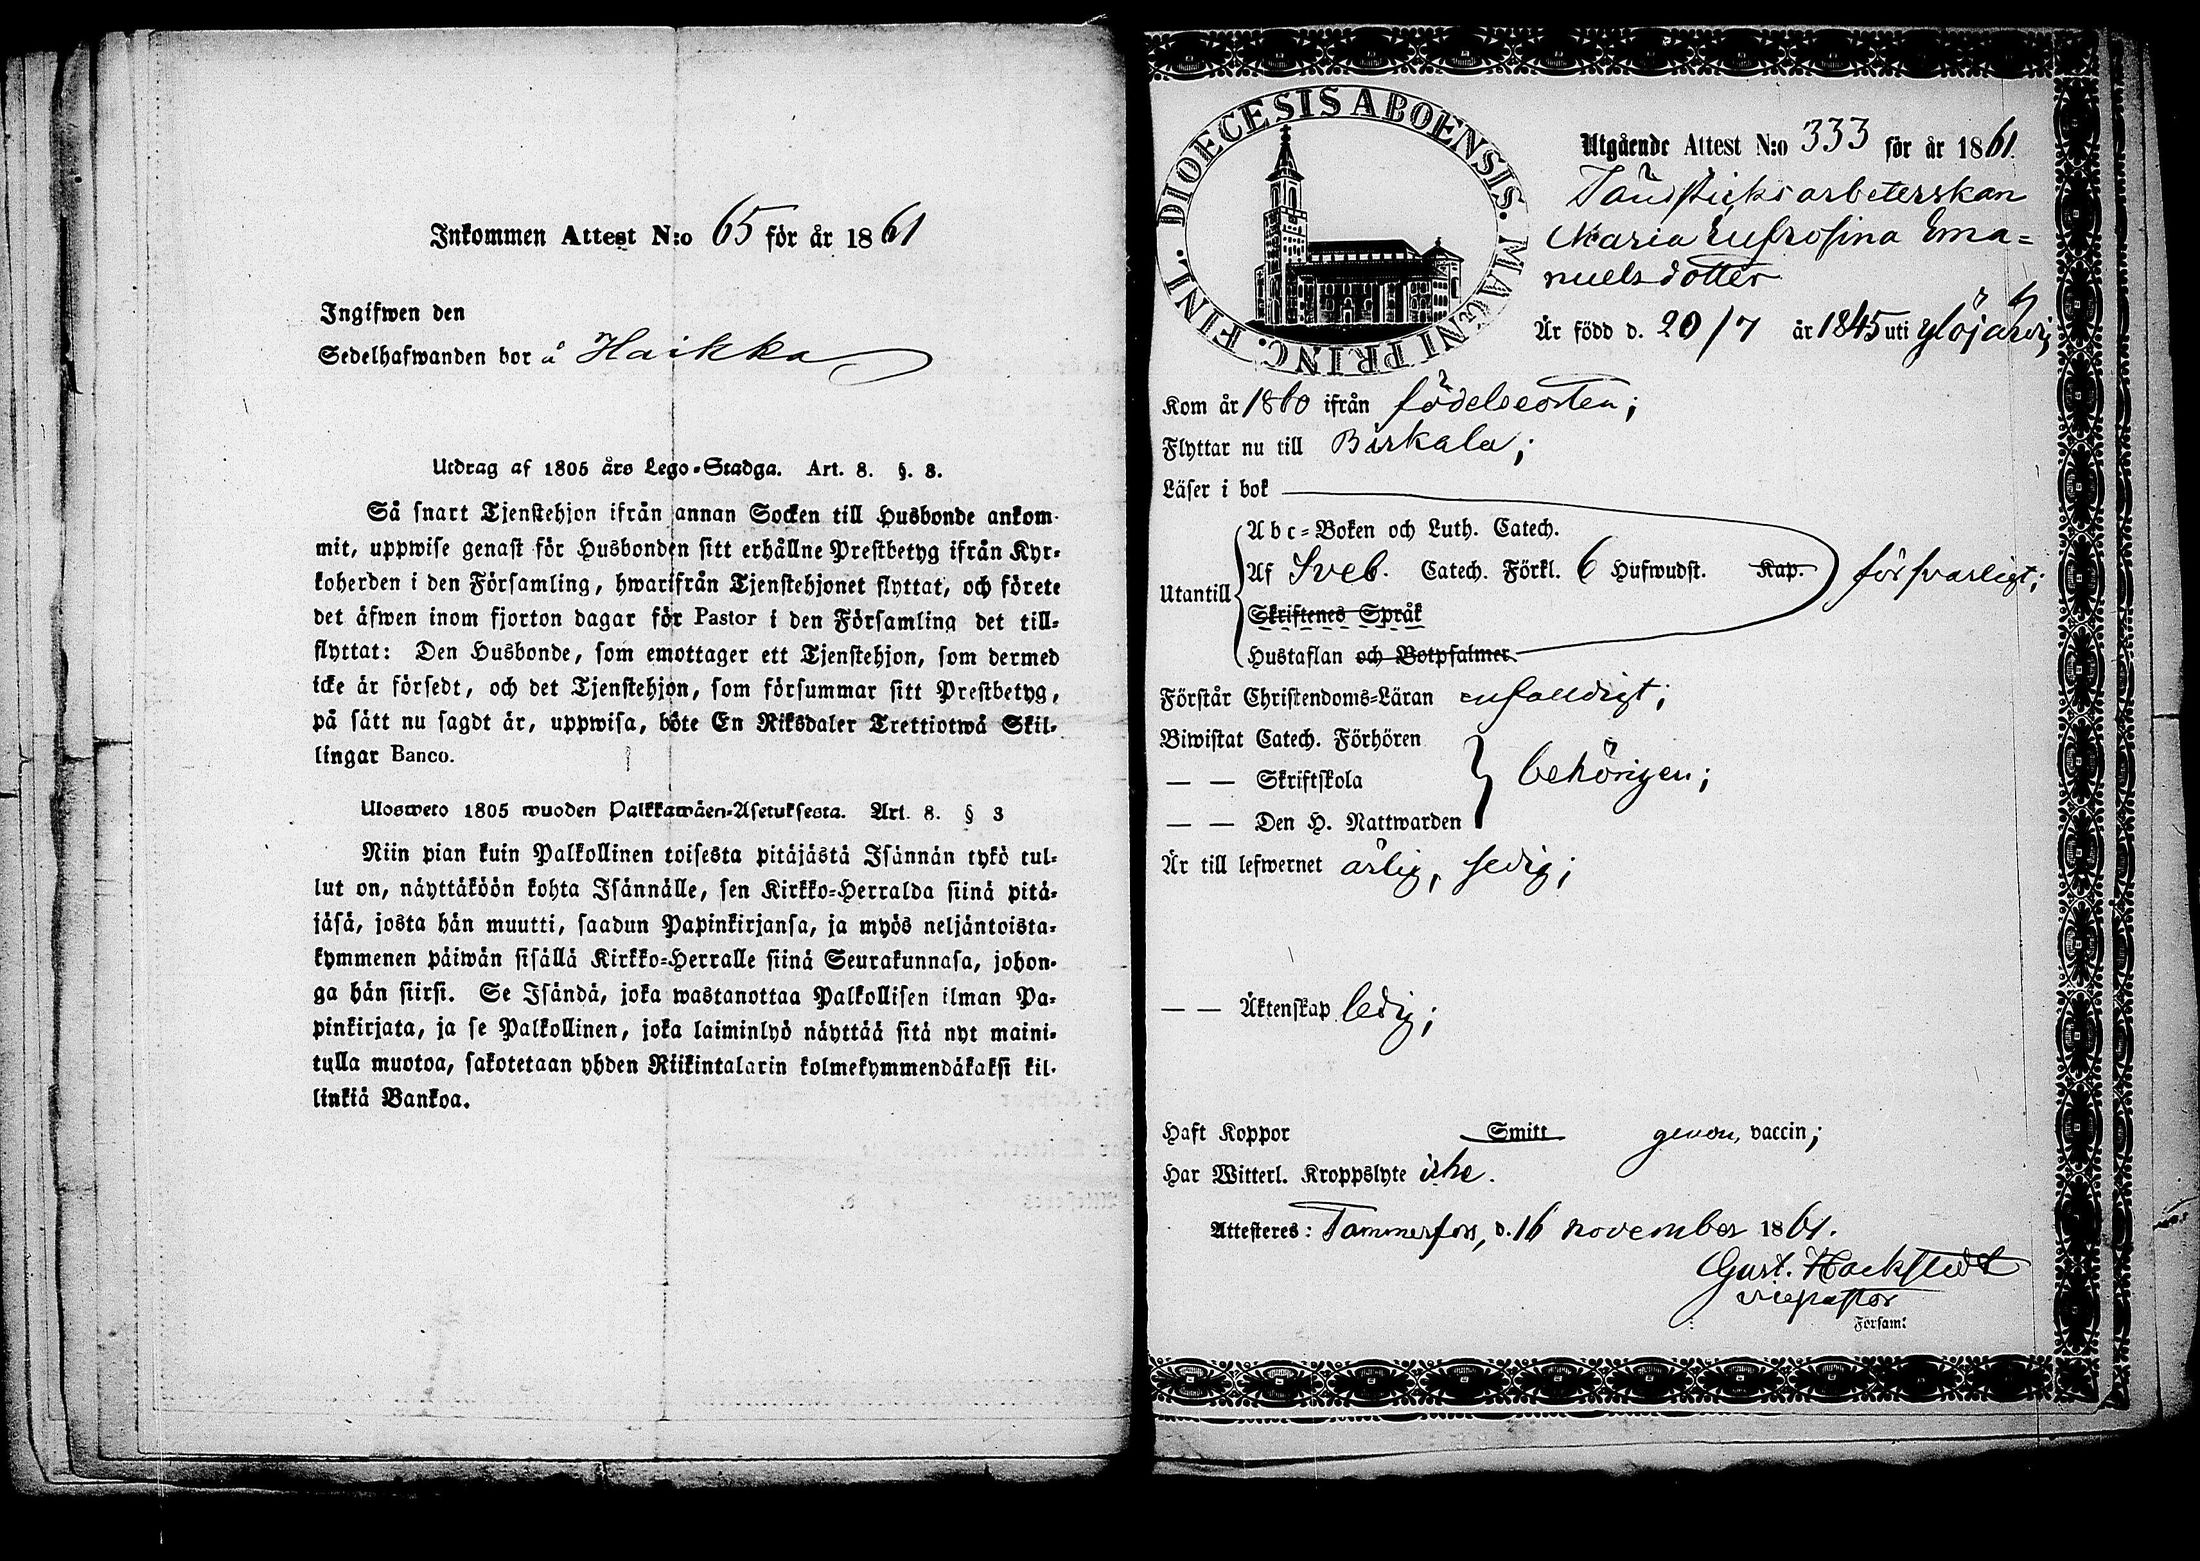 Inkommen Attest N:o 65 för år 1861
Ingifwen den
Sedelhafwanden bor å Haikka
Utdrag af 1805 års Lego-Stadga. Art. 8. §. 3.
Så snart Tjenstehjon ifrån annan Socken till Husbonde ankom-
mit, uppwise genast för Husbonden sitt erhållne Prestbetyg ifrån Kyr-
koherden i den Församling, hwarifrån Tjenstehjonet flyttat, och förete
det äfwen inom fjorton dagar för Pastor i den Församling det till-
flyttat: Den Husbonde, som emottager ett Tjenstehjon, som dermed
icke är försedt, och det Tjenstehjon, som försummar sitt Prestbetyg,
på sätt nu sagdt är, uppwisa, böte En Riksdaler Trettiotwå Skil-
lingar Banco.
Ulosweto 1805 wuoden Palkkawäen-Asetuksesta. Art. 8. § 3
Niin pian kuin Palkollinen toisesta pitäjästä Isännän tykö tul-
lut on, näyttäköön kohta Isännälle, sen Kirkko-Herralda siinä pitä-
jäsä, josta hän muutti, saadun Papinkirjansa, ja myös neljäntoista-
kymmenen päiwän sisällä Kirkko-Herralle siinä Seurakunnasa, johon-
ga hän siirsi. Se Isändä, joka wastanottaa Palkollisen ilman Pa-
pinkirjata, ja se Palkollinen, joka laiminlyö näyttää sitä nyt maini-
tulla muotoa, sakotetaan yhden Riikintalarin kolmekymmendäkaksi kil-
linkiä Bankoa.
DIOECESIS ABOENSIS. MAGNI PRINC. FINL.
Utgående Attest N:o 333 för år 1861.
Tändsticksarbeterskan
Maria Eufrosina Ema=
nuelsdotter
Är född d. 20/7 år 1845 uti Ylöjärvi
Kom år 1860 ifrån födelseorten;
Flyttar nu till Birkala;
Läser i bok
Abc-Boken och Luth. Catech.
Utantill Af Sveb. Catech. Förkl. 6 Hufwudst. Kap. försvarligt;
Skriftenes Språk
Hustaflan och Botpsalmer.
Förstår Christendoms-Läran enfaldigt;
Biwistat Catech. Förhören
— — Skriftskola behörigen;
— — Den H. Nattwarden
Är till lefwernet ärlig, sedig;
— — Äktenskap ledig;
Haft Koppor Smitt genom vaccin;
Har Witterl. Kroppslyte icke.
Attesteres: Tammerfors, d. 16 november 1861.
Gust. Hackstedt
vicepastor
Försam: